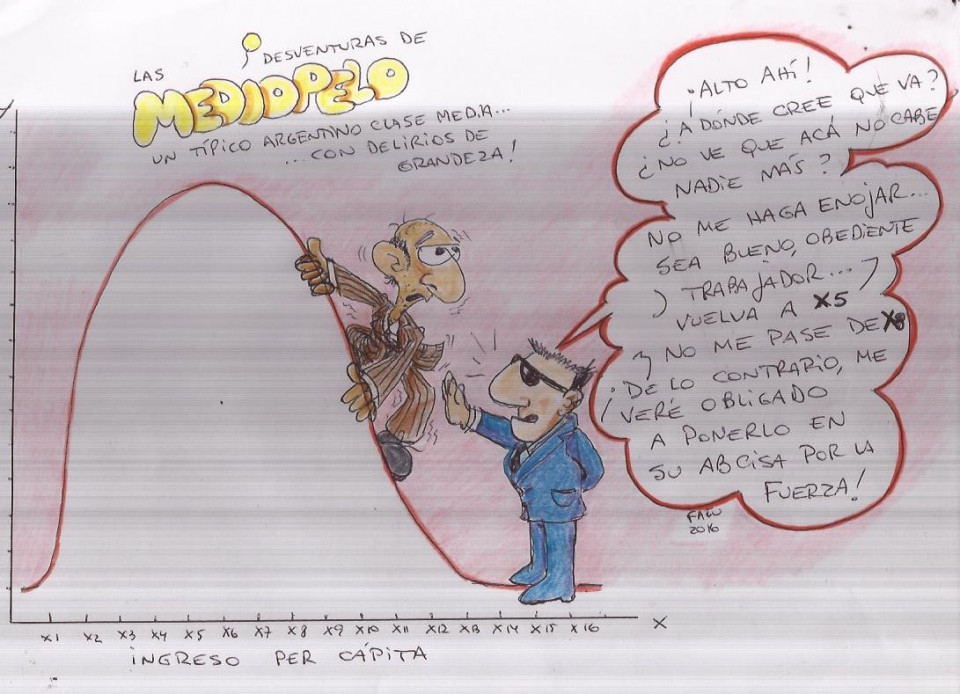 LAS DESVENTURAS DE
MEDIOPELO
UN TÍPICO ARGENTINO CLASE MEDIA...
...CON DELIRIOS DE
GRANDEZA!
¡ALTO AHÍ!
¿A DÓNDE CREE QUE VA?
¿NO VE QUE ACÁ NO CABE
NADIE MÁS?
NO ME HAGA ENOJAR...
SEA BUENO, OBEDIENTE
, TRABAJADOR...
VUELVA A X5
Y NO ME PASE DE
¡DE LO CONTRARIO, ME
VERÉ OBLIGADO
A PONERLO EN
SU ABCISA POR LA
FUERZA!
FACU
2016
X1 X2 X3 X4 X5 X6 X7 X8 X9 X10 X11 X12 X13 X14 X15 X16 X
INGRESO PER CÁPITA